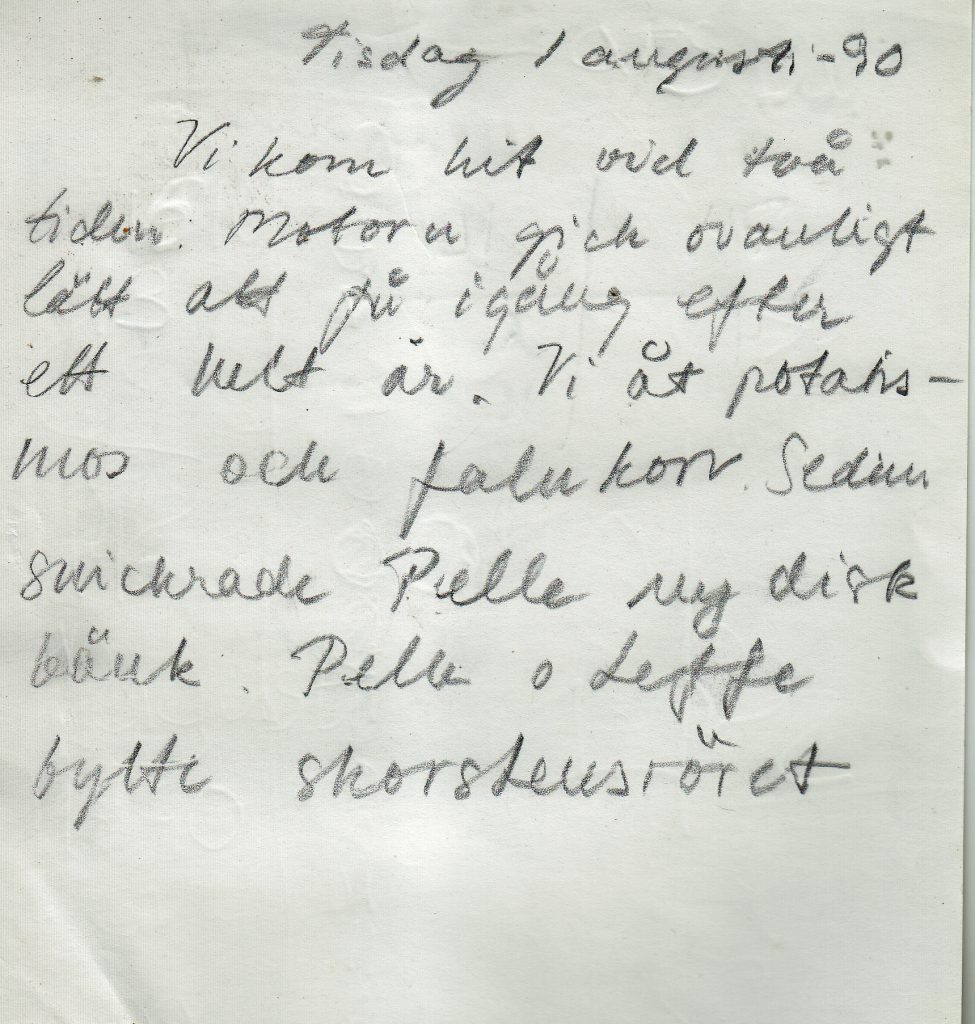 Tisdag 1 augusti -90
Vi kom hit vid två
tiden. Motorn gick ovanligt
lätt att få igång efter
ett helt år. Vi åt potatis-
mos och falukorv. Sedan
snickrade Pelle ny disk
bänk. Pelle o Leffe
bytte skorstensröret